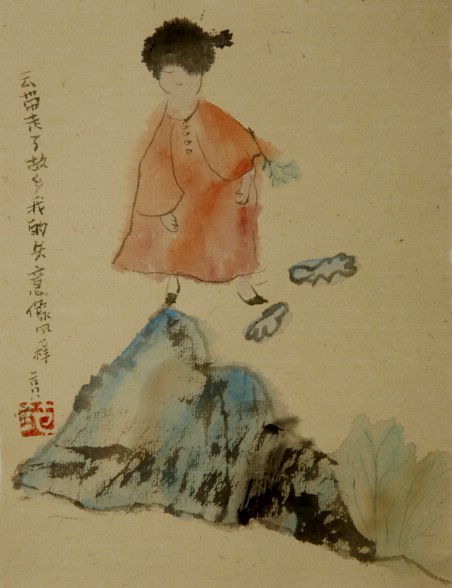 云带走了故乡我的失意像风一样